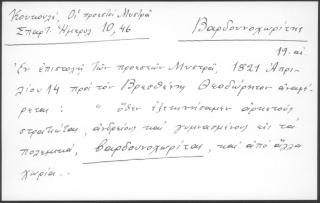 Κουτουλί, Οἱ προεστοί Μυστρᾶ
Σπαρτ. Ἡμερολ. 10, 46
Βαρδουνοχωρίτης
19. αἰ
Ἐν ἐπιστολῇ τῶν προεστῶν Μυστρᾶ, 1821 Ἀπρι-
λίου 14 πρὸς τὸν Βρεσθένης Θεοδώρητον ἀναφέ-
ρεται: " ὅθεν ἐξεκινήσαμεν ἀρκετοὺς
στρατιώτας, ἀνδρείους καὶ γυμνασμένους εἰς τὰ
πολεμικά, Βαρδουνοχωρίτας, καὶ ἀπὸ ἄλλα
χωρία..